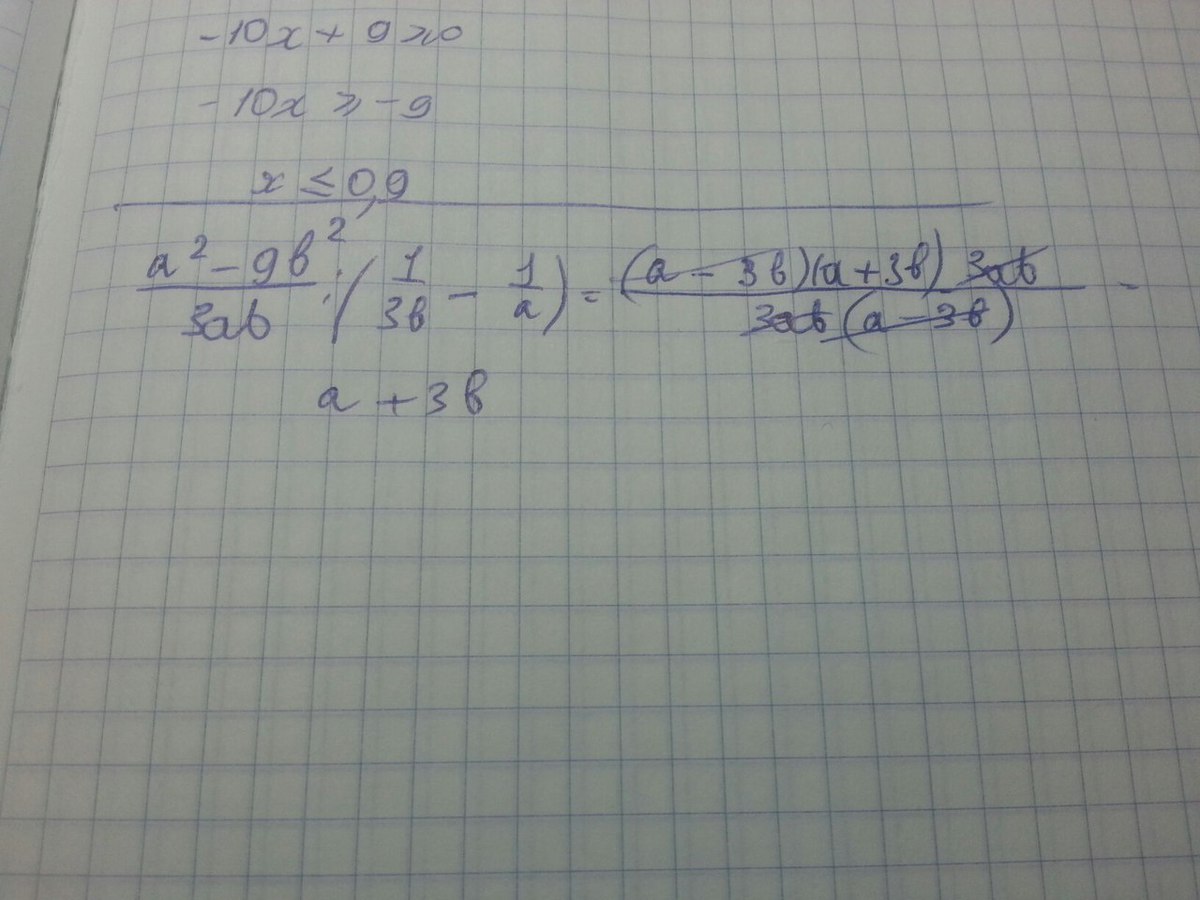 -10x + 9 ≥ 0
-10x ≥ -9
x ≤ 0,9
(a² - 9b²)/(3ab) : (1/(3b) - 1/a) = ((a - 3b)(a + 3b) 3ab)/(3ab (a - 3b)) -
a + 3b